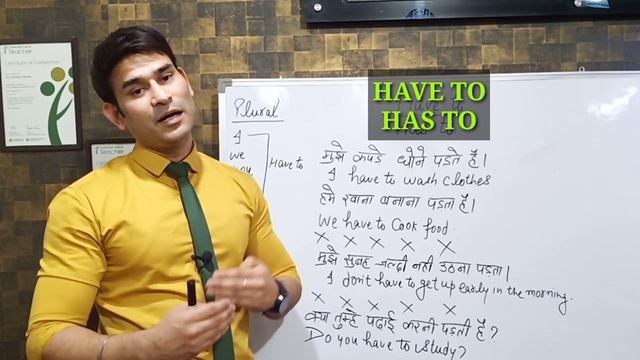 Teacher
Certificate of Completion
HAVE TO
HAS TO
Plural
I
We
Have to
मुझे कपडे धोने पडते हैं।
I have to wash clothes
हमे खाना बनाना पडता हैं।
We have to Cook food.
X X X X X
मुझे सुबह जल्दी नही उठना पडता।
I don't have to get up early in the morning.
X X X X X
क्या तुम्हे पढाई करनी पडती हैं?
Do you have to study?